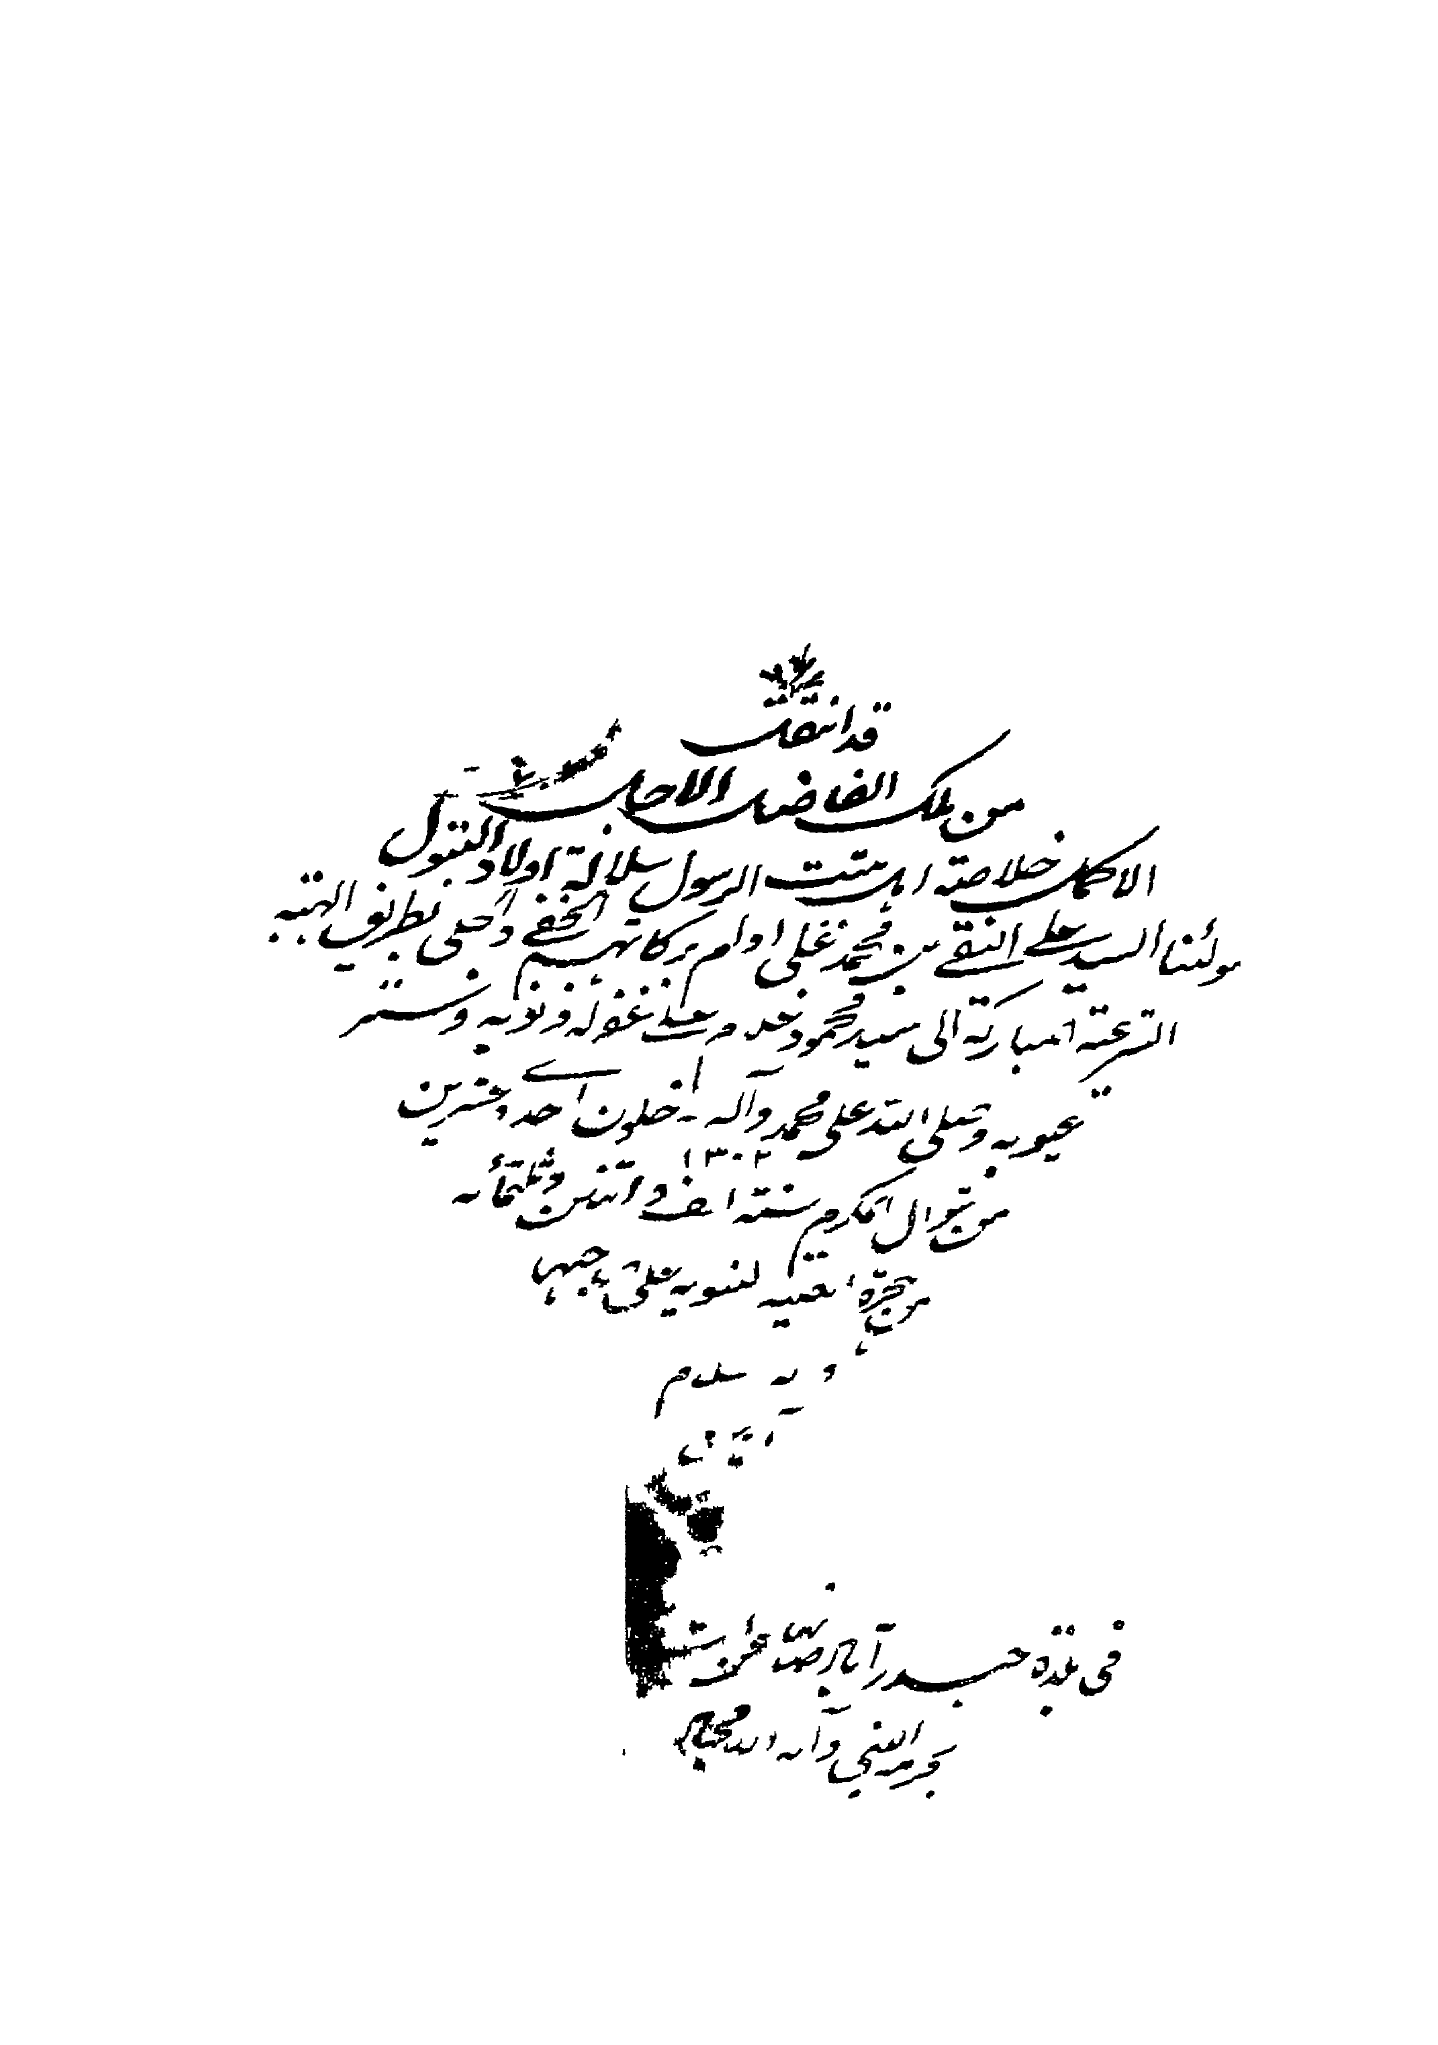 قد انتقل
من ملك الفاضل الاجل
الاكمل خلاصة اهل بيت الرسول سلالة اولاد البتول
مولئنا السيد على النقي بن محمد على ادام بركاتهم الخفي والجلي بطريق الهبة
الشرعية المباركة الى سيد محمود خادم على غفر له ذنوبه وستر
عيوبه وصلى الله على محمد وآله خلون احدى عشرين
١٣٠٢
من شوال المكرم سنة الف و اثنين وثلثمأيه
من هجرة النبوية على صاحبها
وآله سلام
آمين
في بلدة حيدرآباد صين عن
بحرمة النبي وآله الامجاد